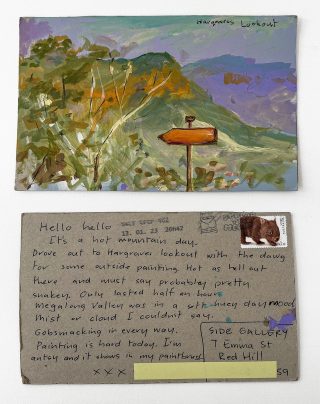 Hargraves Lookout
Hello hello
It's a hot mountain day.
Drove out to Hargraves lookout with the dawg
for some outside painting. Hot as hell out
there and must say probably pretty
snakey. Only lasted half an hour.
Megalong Valley was in a huey day mood
Mist or cloud I couldn't say.
Gobsmacking in every way.
Painting is hard today. I'm
antsy and it shows in my paintbrush
x x x
SIDE GALLERY
7 Emma St
Red Hill
59